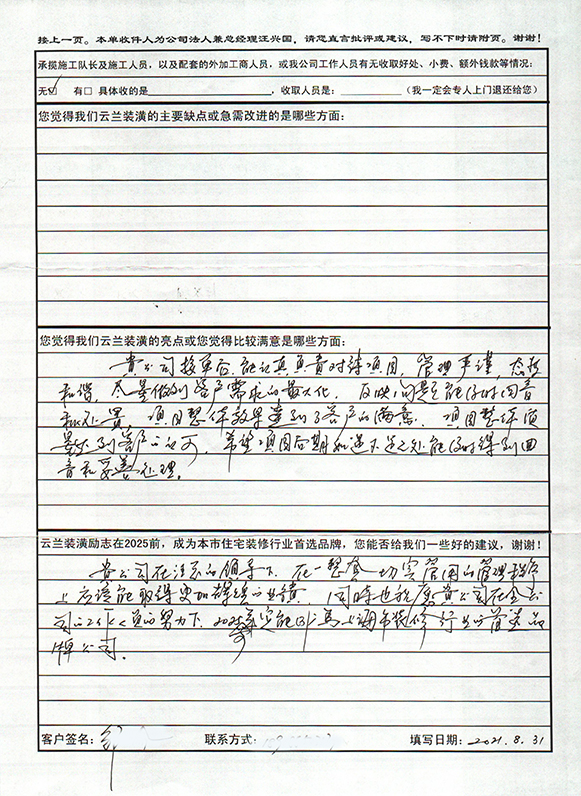 接上一页。本单收件人为公司法人兼总经理汪兴国，请您直言批评或建议，写不下时请附页。谢谢！
承揽施工队长及施工人员，以及配套的外加工商人员，或我公司工作人员有无收取好处、小费、额外钱款等情况：
无☑ 有□ 具体收的是，收取人员是：（我一定会专人上门退还给您）
您觉得我们云兰装潢的主要缺点或急需改进的是哪些方面：
您觉得我们云兰装潢的亮点或您觉得比较满意是哪些方面：
贵公司接单后，能认真负责对待项目，管理严谨，态度
和谐，尽量做到客户需求的最大化，反映问题能及时回音
和处置，项目整体效果达到了客户的满意，项目整体质
量达到客户的认可，希望项目后期如遇不足之处能及时得到回
音和妥善处理。
云兰装潢励志在2025前，成为本市住宅装修行业首选品牌，您能否给我们一些好的建议，谢谢！
贵公司在汪总的领导下，在一整套切实管用的管理
上应该能取得更加辉煌的业绩，同时也祝愿贵公司在全公
司的努力下，2025年定能成为上海市装修行业的首选品
牌公司。
客户签名： 联系方式： 填写日期：2021.8.31